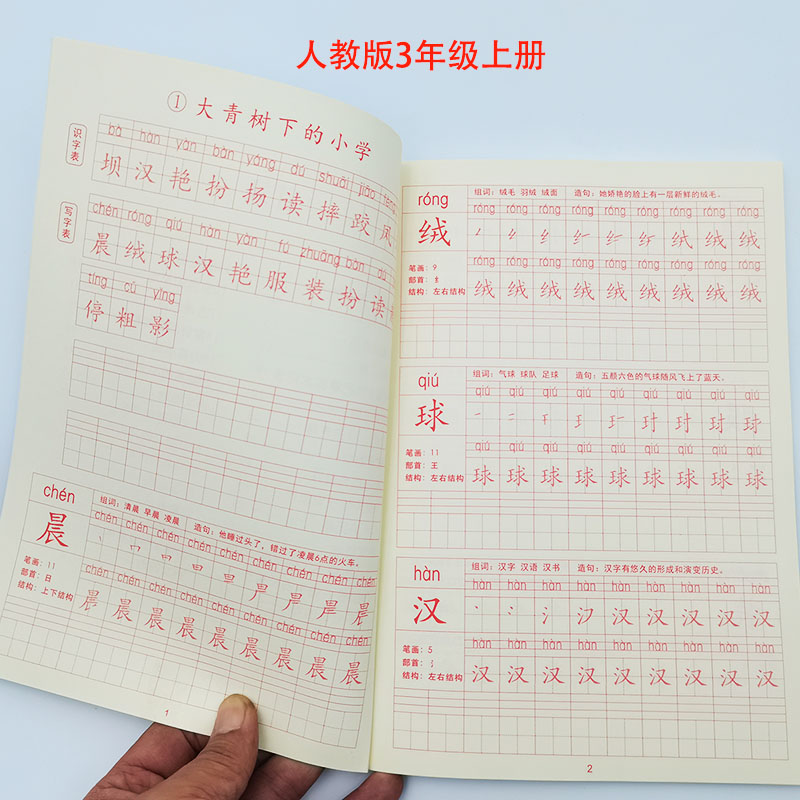 人教版3年级上册
①大青树下的小学
识字表
bà hàn yàn bàn yáng dú shuāi jiāo fèng
坝汉艳扮扬读摔跤凤
写字表
chén róng qiú hàn yàn fú zhuāng bàn dú
晨绒球汉艳服装扮读
tíng cū yǐng
停粗影
chén
晨
笔画：11
部首：日
结构：上下结构
组词：清晨 早晨 凌晨 造句：他睡过头了，错过了凌晨6点的火车。
chén chén chén chén chén chén chén chén chén
chén chén chén chén chén chén chén chén chén
晨晨晨晨晨晨晨晨晨
1
róng
绒
笔画：9
部首：纟
结构：左右结构
组词：绒毛 羽绒 绒面 造句：她娇艳的脸上有一层新鲜的绒毛。
róng róng róng róng róng róng róng róng róng
róng róng róng róng róng róng róng róng róng
绒绒绒绒绒绒绒绒绒
qiú
球
笔画：11
部首：王
结构：左右结构
组词：气球 球队 足球 造句：五颜六色的气球随风飞上了蓝天。
qiú qiú qiú qiú qiú qiú qiú qiú qiú
qiú qiú qiú qiú qiú qiú qiú qiú qiú
球球球球球球球球球
hàn
汉
笔画：5
部首：氵
结构：左右结构
组词：汉字 汉语 汉书 造句：汉字有悠久的形成和演变历史。
hàn hàn hàn hàn hàn hàn hàn hàn hàn
丶 冫 氵 汈 汉 汉 汉 汉 汉
hàn hàn hàn hàn hàn hàn hàn hàn hàn
汉汉汉汉汉汉汉汉汉
2